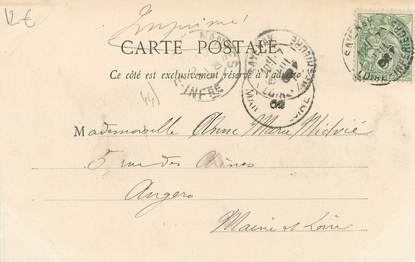 12€
Imprimé
CARTE POSTALE
Ce côté est exclusivement réservé à l'adresse
44
SAVENAY
LOIRE-INFRE
NANTES
02
Mademoiselle Anne Marie
5 rue des Arènes
Angers
Maine et Loire